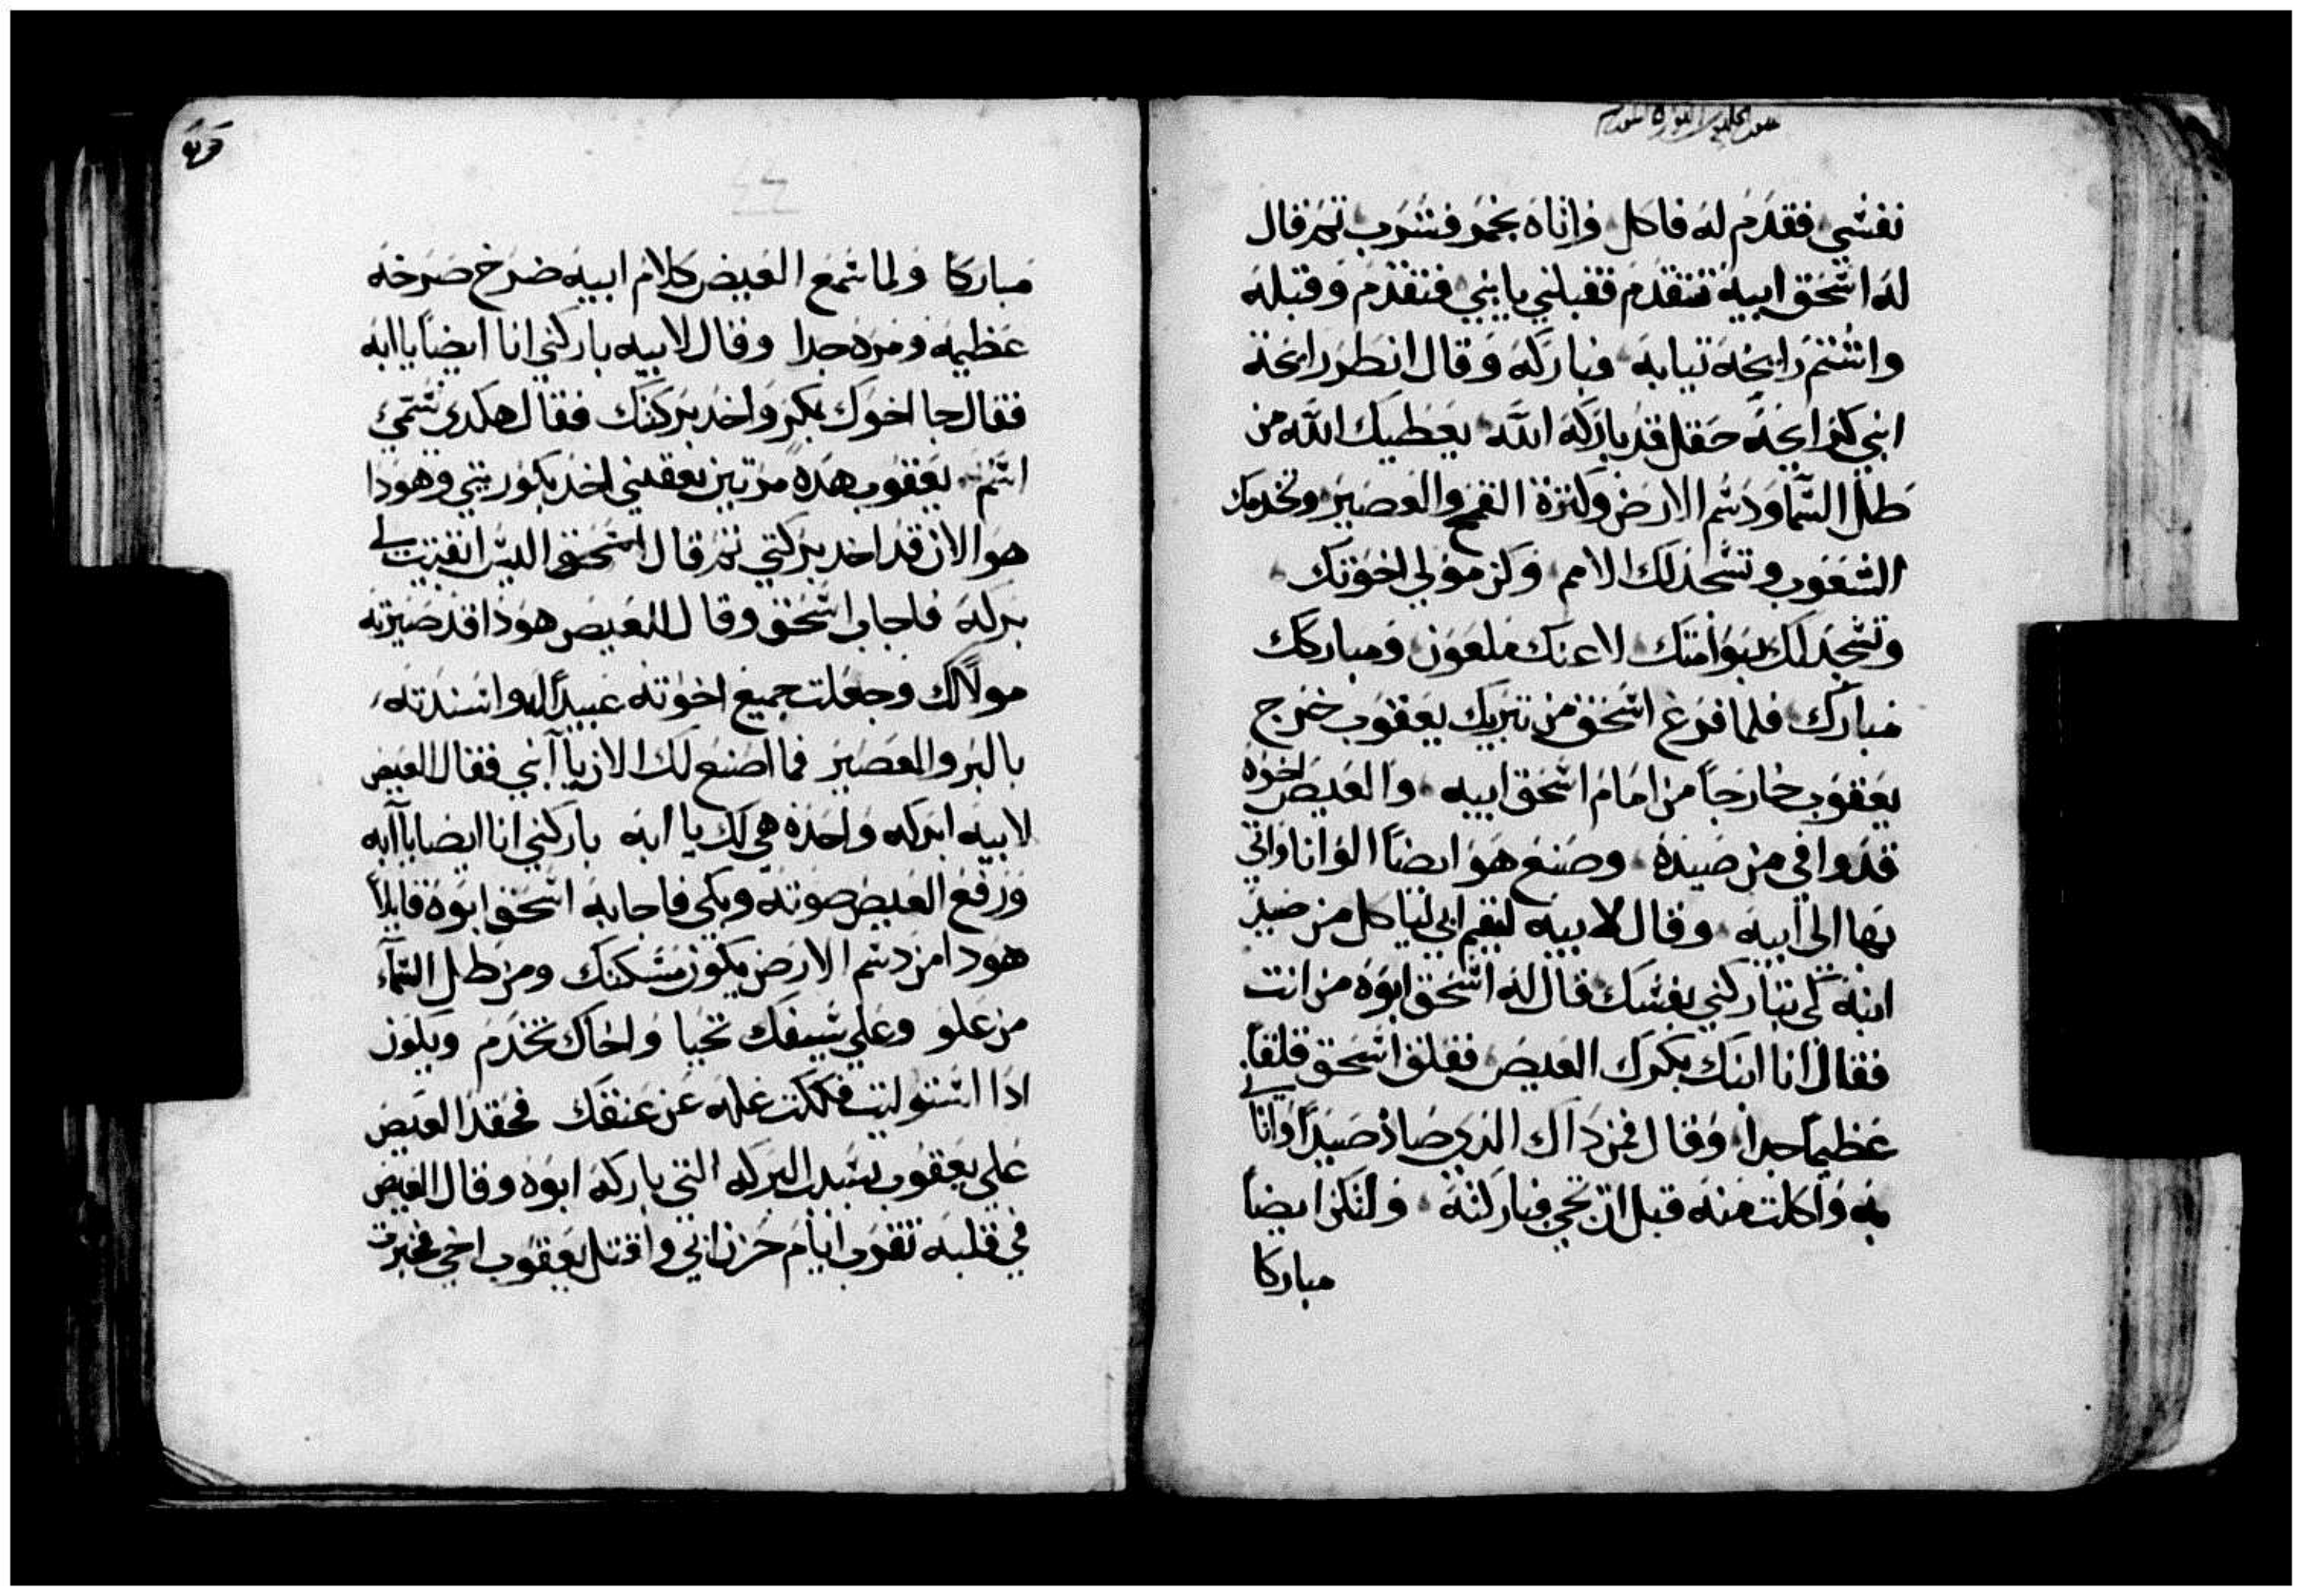 نفسي فقدم له فاكل واتاه بخمر فشرب ثم قال
له اسحق ابيه تتقدم فقبلني يابني فتقدم وقبله
واشتم رايحة تيابه فباركه وقال انطر رايحة
ابني كرايحة حقل قد باركه الله يعطيك الله من
طل السما ودسم الارض وكترة القمح والعصير وتخدمك
الشعوب وتسجد لك الامم وكن مولي اخوتك
وتسجد لك بنو امتك لاعنك ملعون ومباركك
مبارك فلما فرغ اسحق من تبريك يعقوب خرج
يعقوب خارجاً من امام اسحق ابيه والعيص اخوه
قد وافي من صيده وصنع هو ايضاً الوانا واتي
بها الي ابيه وقال لابيه ليقم ابي لياكل من صيد
ابنه كي تباركني نفسك قال له اسحق ابوه من انت
فقال انا ابنك بكرك العيص فقلق اسحق قلقاً
عظيماً جداً وقال فمن داك الدي صاد صيداً واتاني
به واكلت منه قبل ان تجي فباركته ولتكن ايضاً
مباركا
مباركا ولما سمع العيص كلام ابيه صرخ صرخه
عظيمه ومره جدا وقال لابيه باركني انا ايضاً ياابه
فقال جا اخوك بكر واخد بركتك فقال هكدي سمي
اسم يعقوب هده مرتين يعقبني اخد بكوريتي وهودا
هو الان قد اخد بركتي ثم قال اسحق اليس ابقيت لي
بركه فاجاب اسحق وقال للعيص هودا قد صيرته
مولاً لك وجعلت جميع اخوته عبيداً له واسندته
بالبر والعصير فما اصنع لك الان يا ابني فقال العيص
لابيه ابركه واحده هي لك يا ابه باركني انا ايضا ياابه
ورفع العيص صوته وبكي فاجابه اسحق ابوه قايلاً
هودا من دسم الارض يكون مسكنك ومن طل السماء
من علو وعلي سيفك تحيا واخاك تخدم ويكون
ادا استوليت فككت غله عن عنقك فحقد العيص
علي يعقوب بسبب البركه التي باركه ابوه وقال العيص
في قلبه تقرب ايام حزن ابي واقتل يعقوب اخي فخبرت